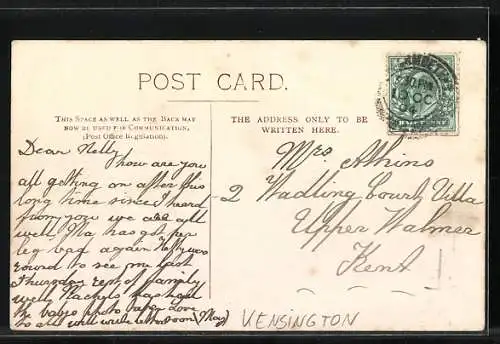 POST CARD.
THIS SPACE AS WELL AS THE BACK MAY
NOW BE USED FOR COMMUNICATION.
(Post Office Regulation).
THE ADDRESS ONLY TO BE
WRITTEN HERE.
Dear Nelly
how are you
all getting on after this
long time since I heard
from you we are all
well Ma has got her
leg bad again Nelly was
round to see me last
Thursday rest of family
well Rachels has had
the babys photo taken love
to all will write letter soon (May)
Mrs Atkins
2 Wadling Court Villa
Upper Walmer
Kent
KENSINGTON